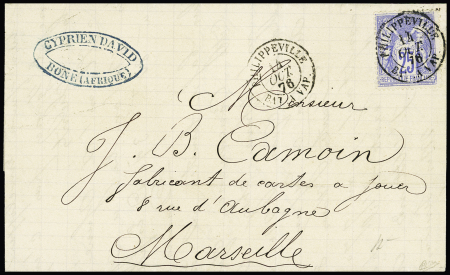 CYPRIEN DAVID
BONE (AFRIQUE)
PHILIPPEVILLE
14
OCT
76
BAT VAP.
PHILIPPEVILLE
14
OCT
76
VAP.
25
Monsieur
J. B. Camoin
fabricant de cartes a jouer
8 rue d'Aubagne
Marseille